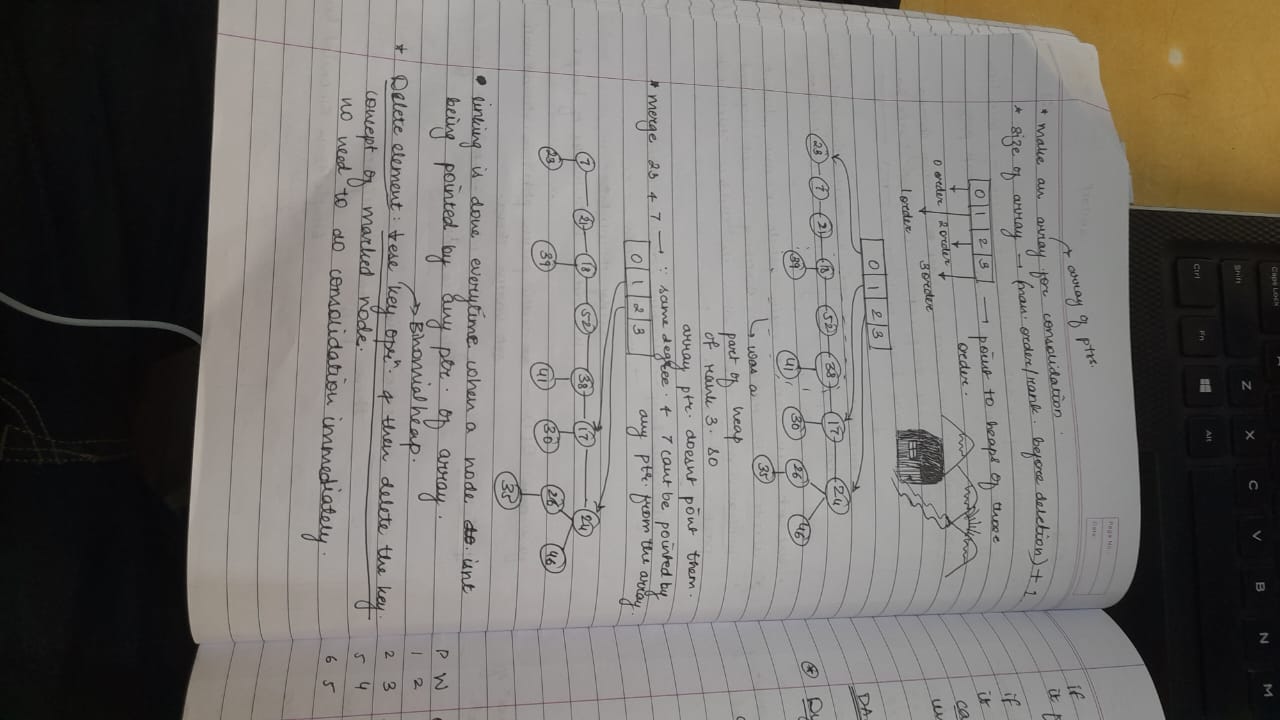 Caps Lock
Shift
Z X C V B N M
Ctrl Fn Alt
Page No.:
Date:
array of ptrs.
* make an array for consolidation.
* size of array → (max. order/rank. before deletion) + 1
0 1 2 3 → point to heaps of those
order.
0 order 2 order
3 order
1 order
0 1 2 3
23 7 21 18 52 38 17 24
39 41 30 26 46
35
↳ was a
part of heap
of rank 3. so
array ptr. doesnt point them.
* merge 23 & 7 → ∵ same degree. & 7 cant be pointed by
any ptr. from the array.
0 1 2 3
7 21 18 52 38 17 24
23 39 41 30 26 46
35
• linking is done everytime when a node isnt
being pointed by any ptr. of array.
→ Binomial heap.
* Delete element: ↓ese key oprⁿ. & then delete the key.
concept of marked node.
no need to do consolidation immediately.
if
it
if
it
ca
DA
P W
1 2
2 3
5 4
6 5